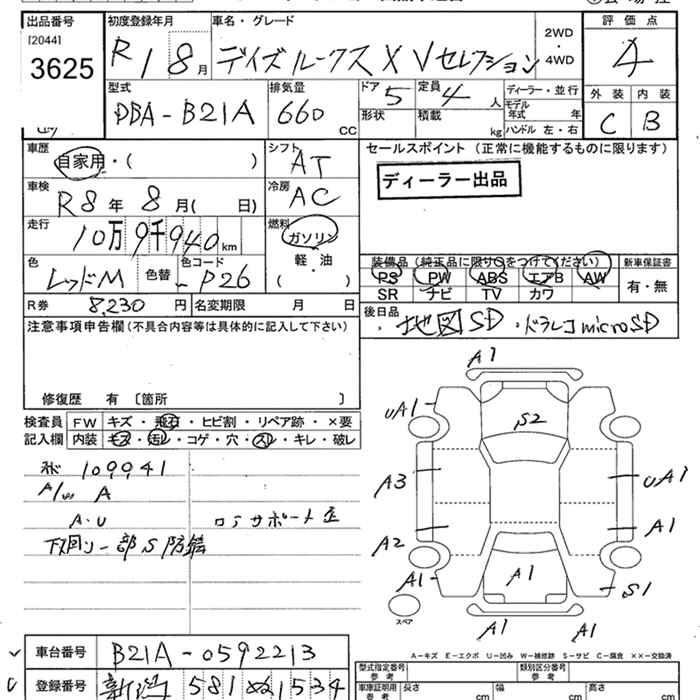 出品番号
[2044]
3625
初度登録年月
R1 8月
車名・グレード
デイズルークス X Vセレクション
2WD
・
4WD
評価点
4
外装 内装
C B
型式
DBA-B21A
排気量
660 CC
ドア 5
定員 4 人
形状
積載 kg
ディーラー・並行
モデル年式 年
ハンドル 左・右
車歴
自家用・( )
シフト
AT
車検
R8年 8月( 日)
冷房
AC
走行
10万9千940km
燃料
ガソリン
軽・油
( )
色
レッドM
色替
色コード
P26
R券 8,230円
名変期限 月 日
セールスポイント(正常に機能するものに限ります)
ディーラー出品
装備品(純正品に限り○をつけてください)
PS PW ABS エアB AW
SR ナビ TV カワ
新車保証書
有・無
後日品
地図SD・ドラレコmicroSD
注意事項申告欄(不具合内容等は具体的に記入して下さい)
修復歴 有 〔箇所 〕
検査員記入欄
FW キズ・飛石・ヒビ割・リペア跡・×要
内装 キズ・汚レ・コゲ・穴・スレ・キレ・破レ
109941
A/w A
A・U
ロアサポート歪
下回り一部S防錆
A1
UA1
S2
A3
UA1
A2
A1
A1
A1
S1
A1
A1
スペア
A-キズ E-エクボ U-凹み W-補修跡 S-サビ C-腐食 ××-交換済
車台番号
B21A-0592213
登録番号
新潟 581 ぬ1534
型式指定番号
参考
類別区分番号
参考
車庫証明用
参考
長さ cm
幅 cm
高さ cm